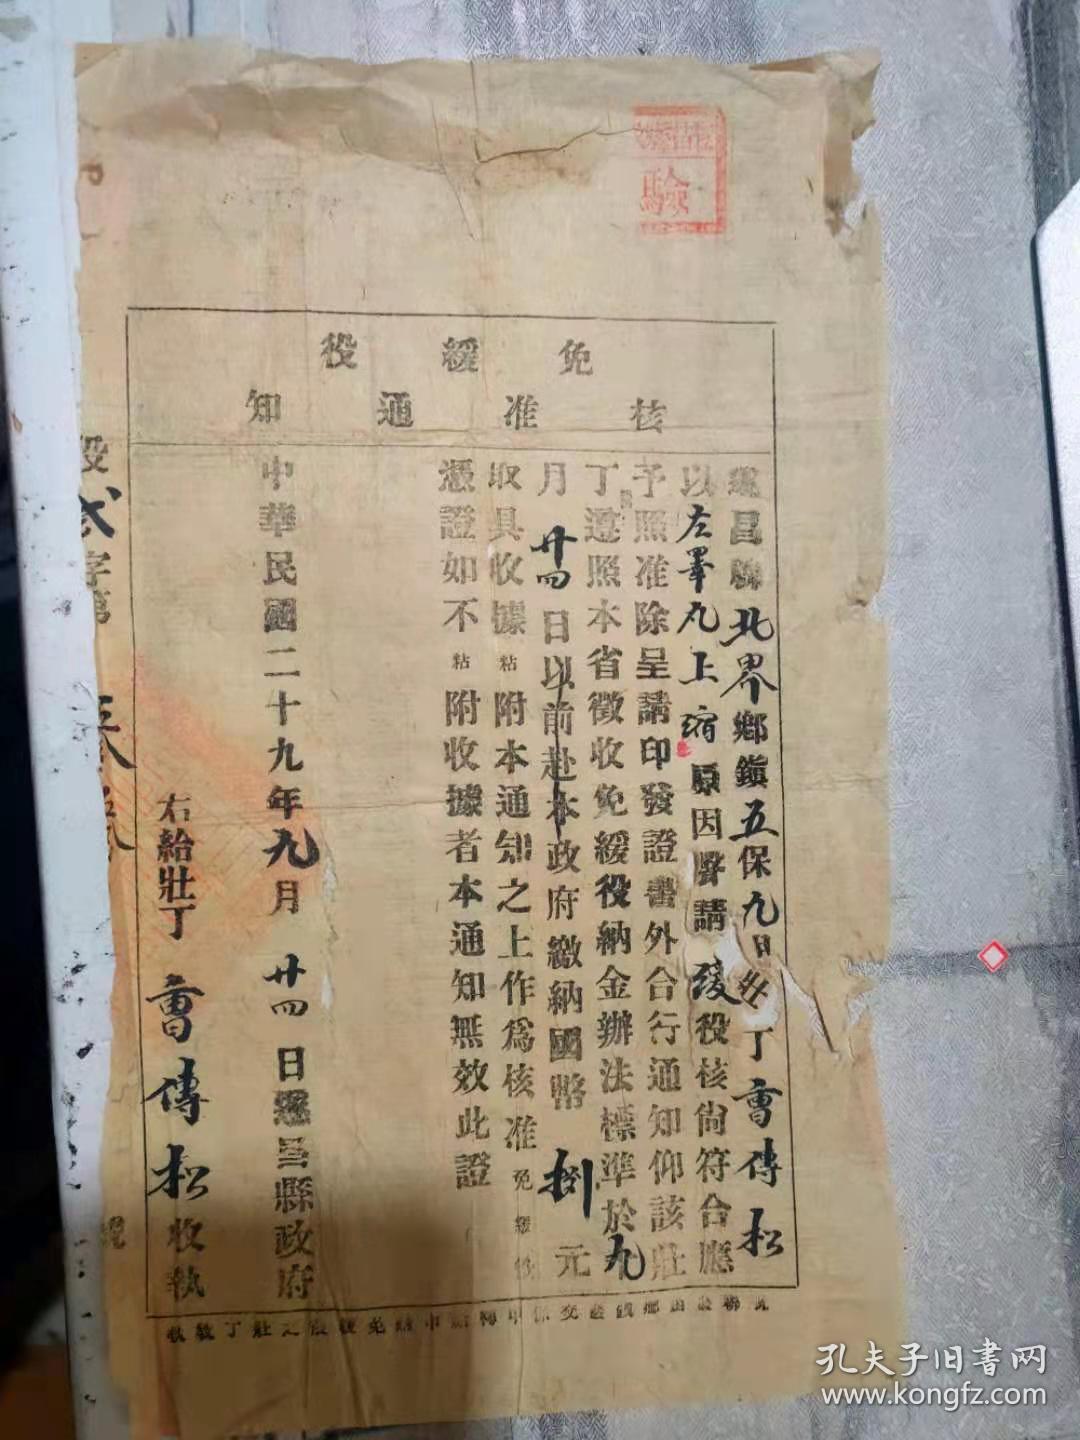 驗
免緩役
核准通知
遂昌縣北界鄉鎮五保九甲壯丁曹傳松
以左睪丸上縮原因聲請緩役核尙符合應
予照准除呈請印發證書外合行通知仰該壯
丁遵照本省徵收免緩役納金辦法標準於九
月廿四日以前赴本政府繳納國幣捌元
取具收據粘附本通知之上作爲核准免緩役
憑證如不粘附收據者本通知無效此證
中華民國二十九年九月廿四日遂昌縣政府
右給壯丁曹傳松收執
役弍字第 號
孔夫子旧書网
www.kongfz.com